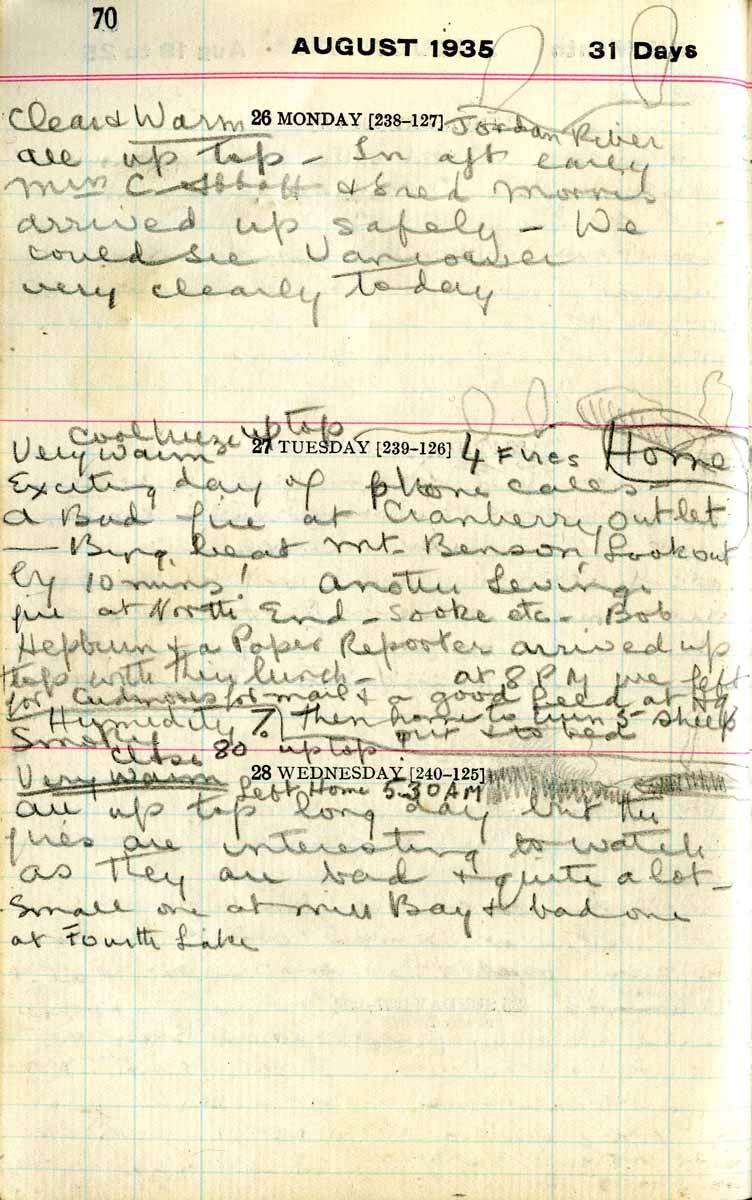 70
AUGUST 1935 31 Days
Clear & Warm 26 MONDAY [238–127] Jordan River
all up top – In aft early
Mrs C Abbott & Fred Morris
arrived up safely – We
could see Vancouver
very clearly today
cool breeze up top
Very warm 27 TUESDAY [239–126] 4 Fires Home
Exciting day of phone calls –
a Bad fire at Cranberry, outlet
— Bing, beat Mt. Benson! Lookout
by 10 mins! Another Levings
fire at North End – Sooke etc – Bob
Hepburn & a Paper Reporter arrived up
top with their lunch – at 8 PM we left
for Cudmores for mail & a good feed at Hq
Humidity 7% then home to turn 5 sheep
Smoky out & to bed
close 80 up top
Very Warm 28 WEDNESDAY [240–125]
Left Home 5.30 AM
all up top long day but the
fires are interesting to watch
as they are bad & quite a lot –
Small one at Mill Bay & bad one
at Fourth Lake